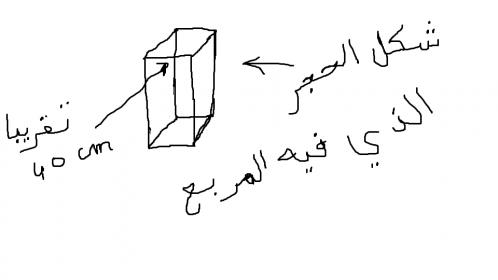 شكل الحجر
الذي فيه المربع
تقريبا
40 cm